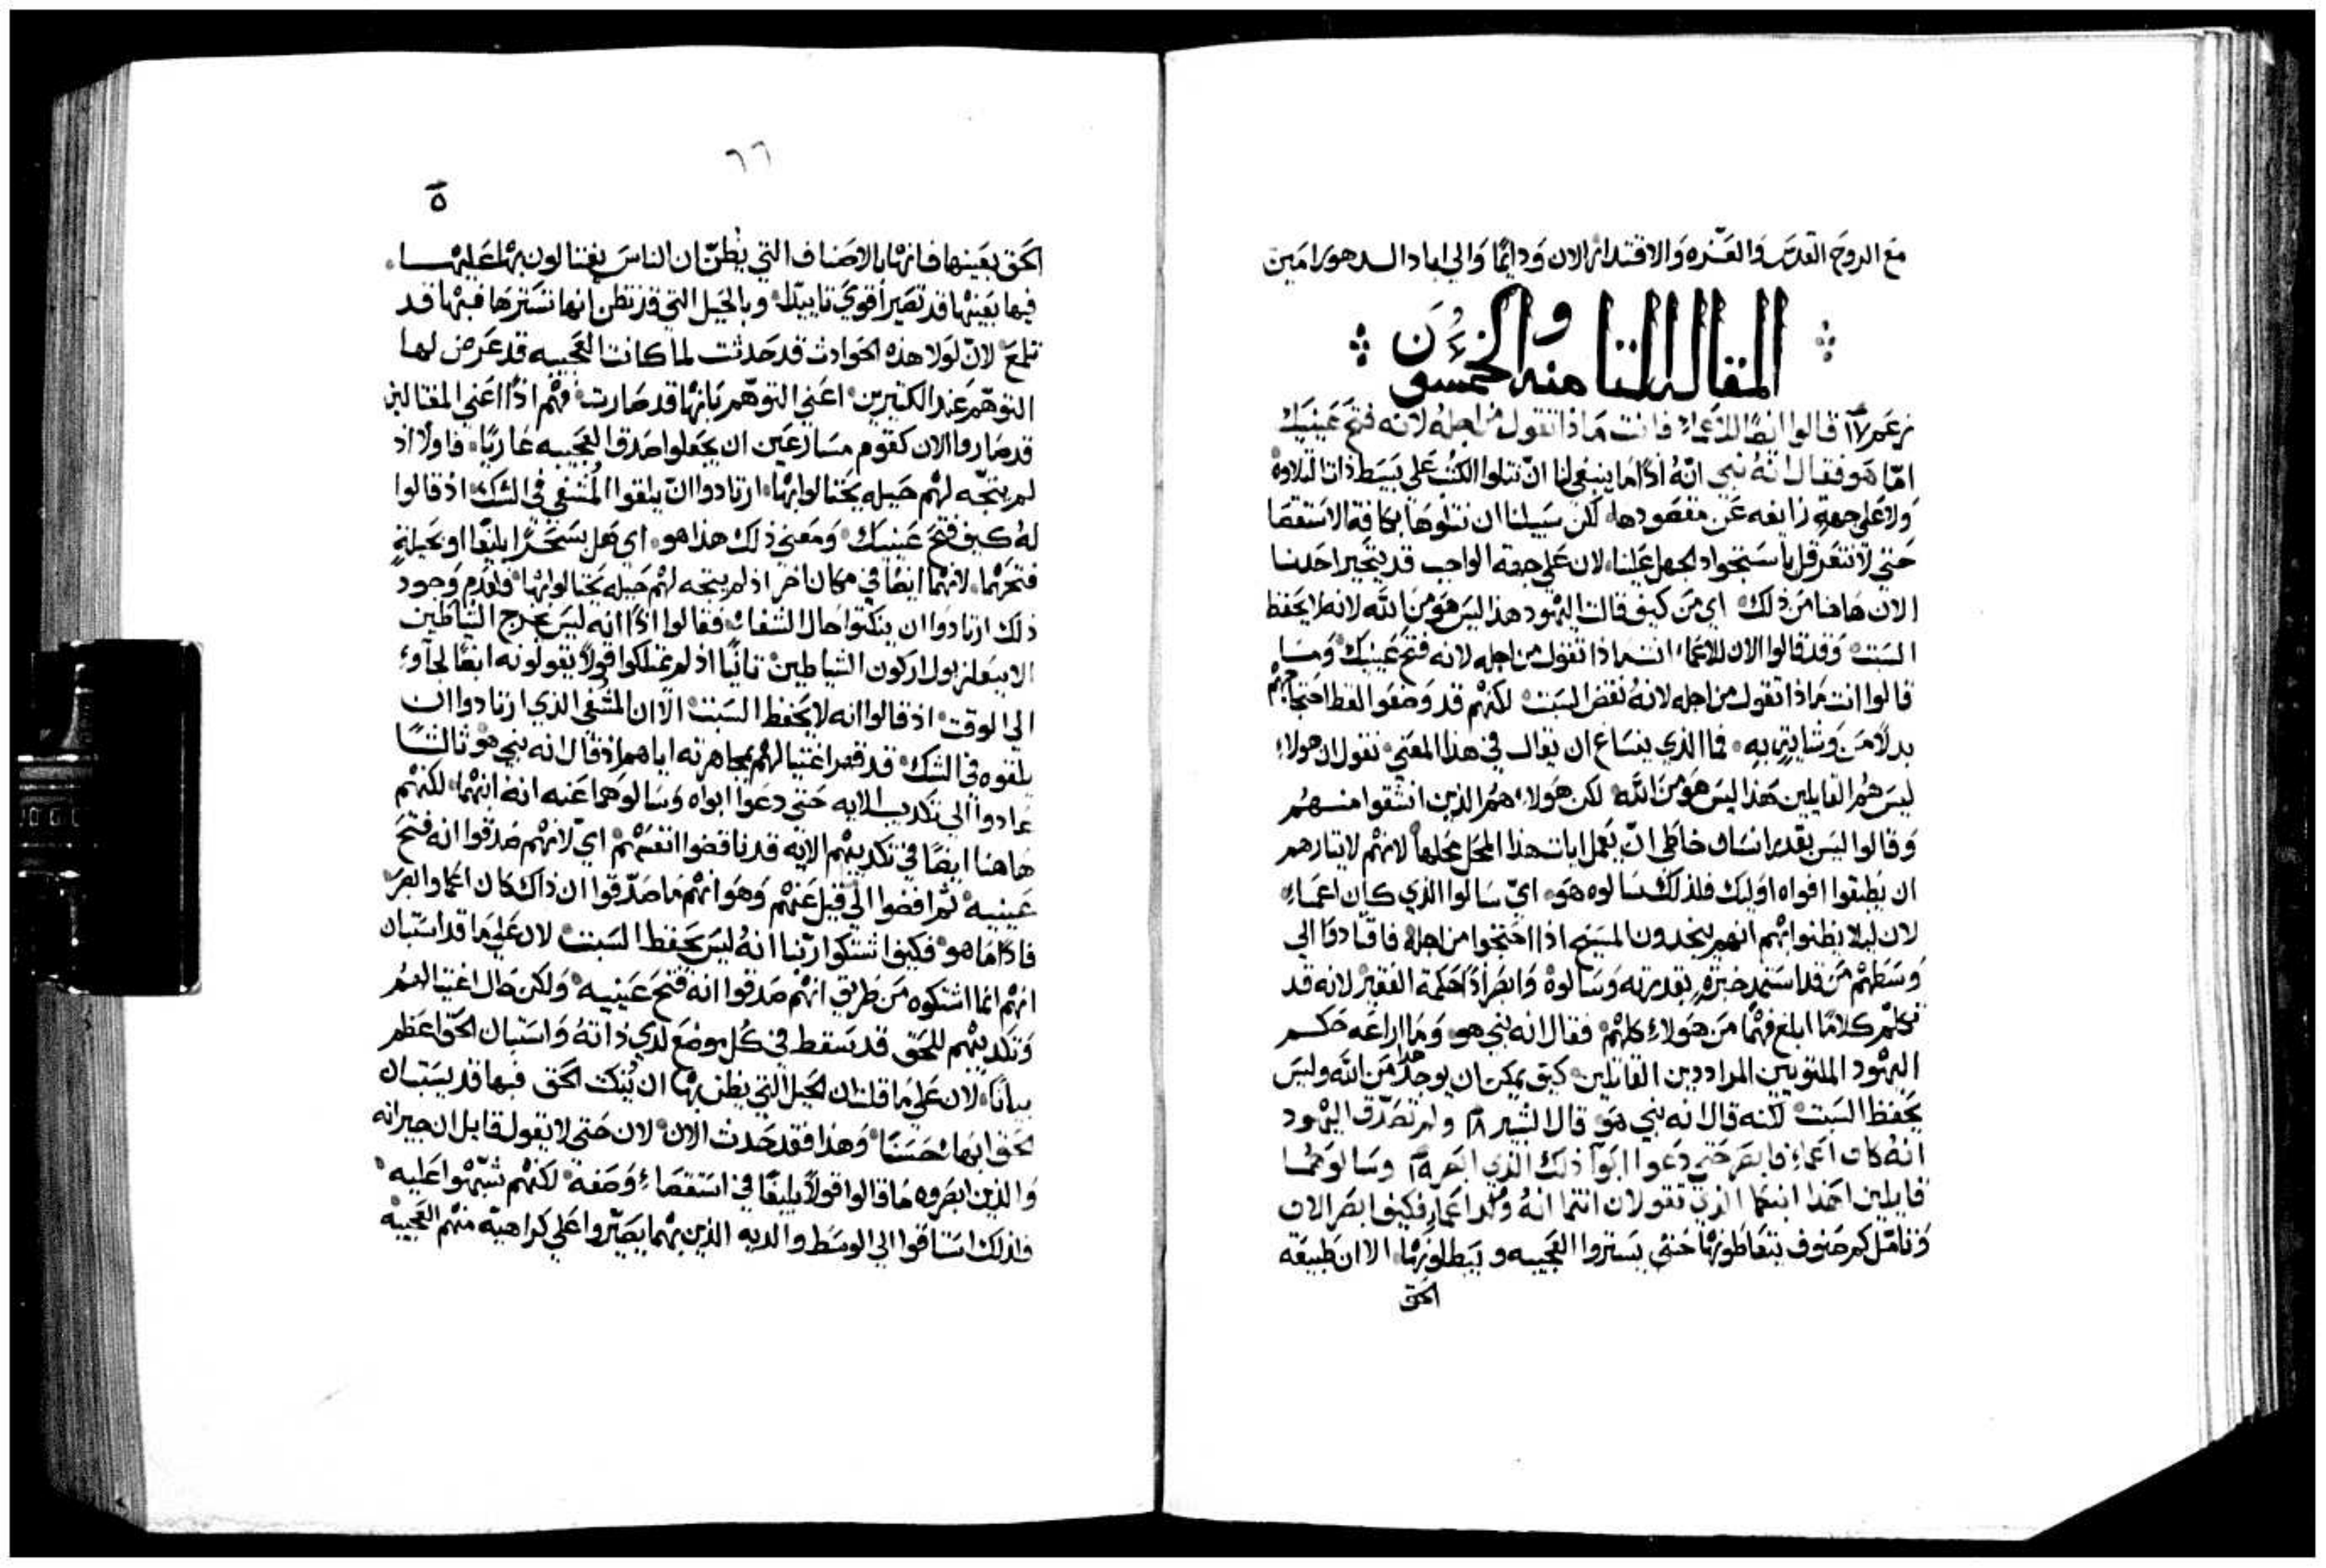 مع الروح القدس والعزه والاقتدار الان ودايمًا والي اباد الدهور امين
المقاله الثامنه والخمسون
زعم ١٧ قالوا ايضًا للاعماء فانت ماذا تقول من اجله لانه فتح عينيك
امّا هو فقال انه نبي انّه اذًا ما ينبغي لنا انّ نتلوا الكتب علي بسيط ذات التلاوه
ولا علي جهةٍ زايغه عن مقصودها لكن سبيلنا ان نتلوها بكافة الاستقصا
حتي لا نتعرقل باستحواد الجهل علينا لان علي جهة الواجب قد يتحير احدنا
الان هاهنا من ذلك اي من كيف قالت اليهود هذا ليس هو من الله لانه لا يحفظ
السبت وقد قالوا الان للاعماء انت ماذا تقول من اجله لانه فتح عينيك وما
قالوا انت ماذا تقول من اجله لانه نقض السبت لكنهم قد وضعوا لفظ احتجاجهم
بدلًا من وشايتٍ به فما الذي ينساغ ان يقال في هذا المعني نقول ان هولاء
ليس هم القايلين هذا ليس هو من الله لكن هولاء هم الذين انشقوا منهم
وقالوا ليس بقدر انسان خاطي انّ يعمل ايات هذا المحل محلها لانهم لايثارهم
ان يطبقوا افواه اوليك فلذلك سالوه هو ايّ سالوا الذي كان اعماء
لان ليلا يظنوا بهم انهم يجحدون المسيح اذا احتجوا من اجله فاقتادوا الي
وسطهم من قد استمد خبرةٍ بقدرته وسالوه وابصر اذًا حكمة الفقير لانه قد
تكلم كلامًا ابلغ فهمًا من هولاء كلهم فقال انه نبي هو وما اراعه حكم
اليهود الملتويين المراددين القايلين كيف يمكن ان يوجد هذا من الله وليس
يحفظ السبت لكنه قال انه نبي هو قال البشير ١٨ ولم تصدّق اليهود
انه كان اعماء فابصر حتي دعوا ابوا ذلك الذي ابصر ١٩ وسالوهما
قايلين اهذا ابنكما الذي تقولان انتما انه ولد اعماء فكيف ابصر الان
وتامّل كم صنوف يتعاطونها حتي يستروا العجيبه ويبطلونها الا ان طبيعة
الحق
٦٦
٥
الحق بعينها فانها بالاصناف التي يُظنّ ان الناس يغتالون بها عليها
فيها بعينها قد تصير اقوي تاييدًا وبالحيل التي قد تظن انها تسترها فبها قد
تلمع لانّ لولا هذه الحوادث قد حدثت لما كانت العجيبه قد عرض لها
التوهّم عند الكثيرين اعني التوهّم بانها قد صارت فهم اذًا اعني المغتالين
قد صاروا الان كقوم مسارعين ان يجعلوا صدق العجيبه عاريًا فاولًا اذ
لم يتجّه لهم حيله يحتالوا بها ارتادوا انّ يلقوا المُشفي في الشك اذ قالوا
له كيف فتح عينيك ومعني ذلك هذا هو اي هل بسحرًا بليغًا او بحيلةٍ
فتحهما لانهما ايضًا في مكان اخر اذ لم يتجه لهم حيله يحتالوا بها فلعدم وجود
ذلك ارتادوا ان ينكتوا حال الشفاء فقالوا اذًا انه ليس يخرج الشياطين
الا ببعلزبول اركون الشياطين ثانيًا اذ لم يمتلكوا قولًا يقولونه ايضًا لجاوء
الي الوقت اذ قالوا انه لا يحفظ السبت الّا ان المُشفي الذي ارتادوا ان
يلقوه في الشك قد قهر اغتيالهم بمجاهرته اياهم اذ قال انه نبي هو ثالثًا
عادوا الي تكذيب الايه حتي دعوا ابواه وسالوهما عنه انه ابنهما لكنهم
هاهنا ايضًا في تكذيبهم الايه قد ناقضوا انفسهم ايّ لانهم صدقوا انه فتح
عينيه ثم افضوا الي قبل عنهم وهو انهم ما صدّقوا ان ذاك كان اعما وابصر
فاذًا ما هو فكيف اشتكوا ربّنا انه ليس يحفظ السبت لان علي ما قد استبان
انهم انما اشتكوه من طريق انهم صدقوا انه فتح عينيه ولكن حال اغتيالهم
وتكذيبهم للحق قد يسقط في كل موضع لدي ذاته واستبان الحق اعظم
بيانًا لان علي ما قلت ان الحيل التي يظن بها ان يُنكت الحق فبها قد يستبان
الحق ابها حسنًا وهذا فقد حدث الان لان حتي لا يقول قايل ان جيرانه
والذين ابصروه ما قالوا قولًا بليغًا في استقصاء وصفه لكنهم شبّهوا عليه
فلذلك استاقوا الي الوسط والديه الذين بهما يصيّروا علي كراهيّه منهم العجيبه